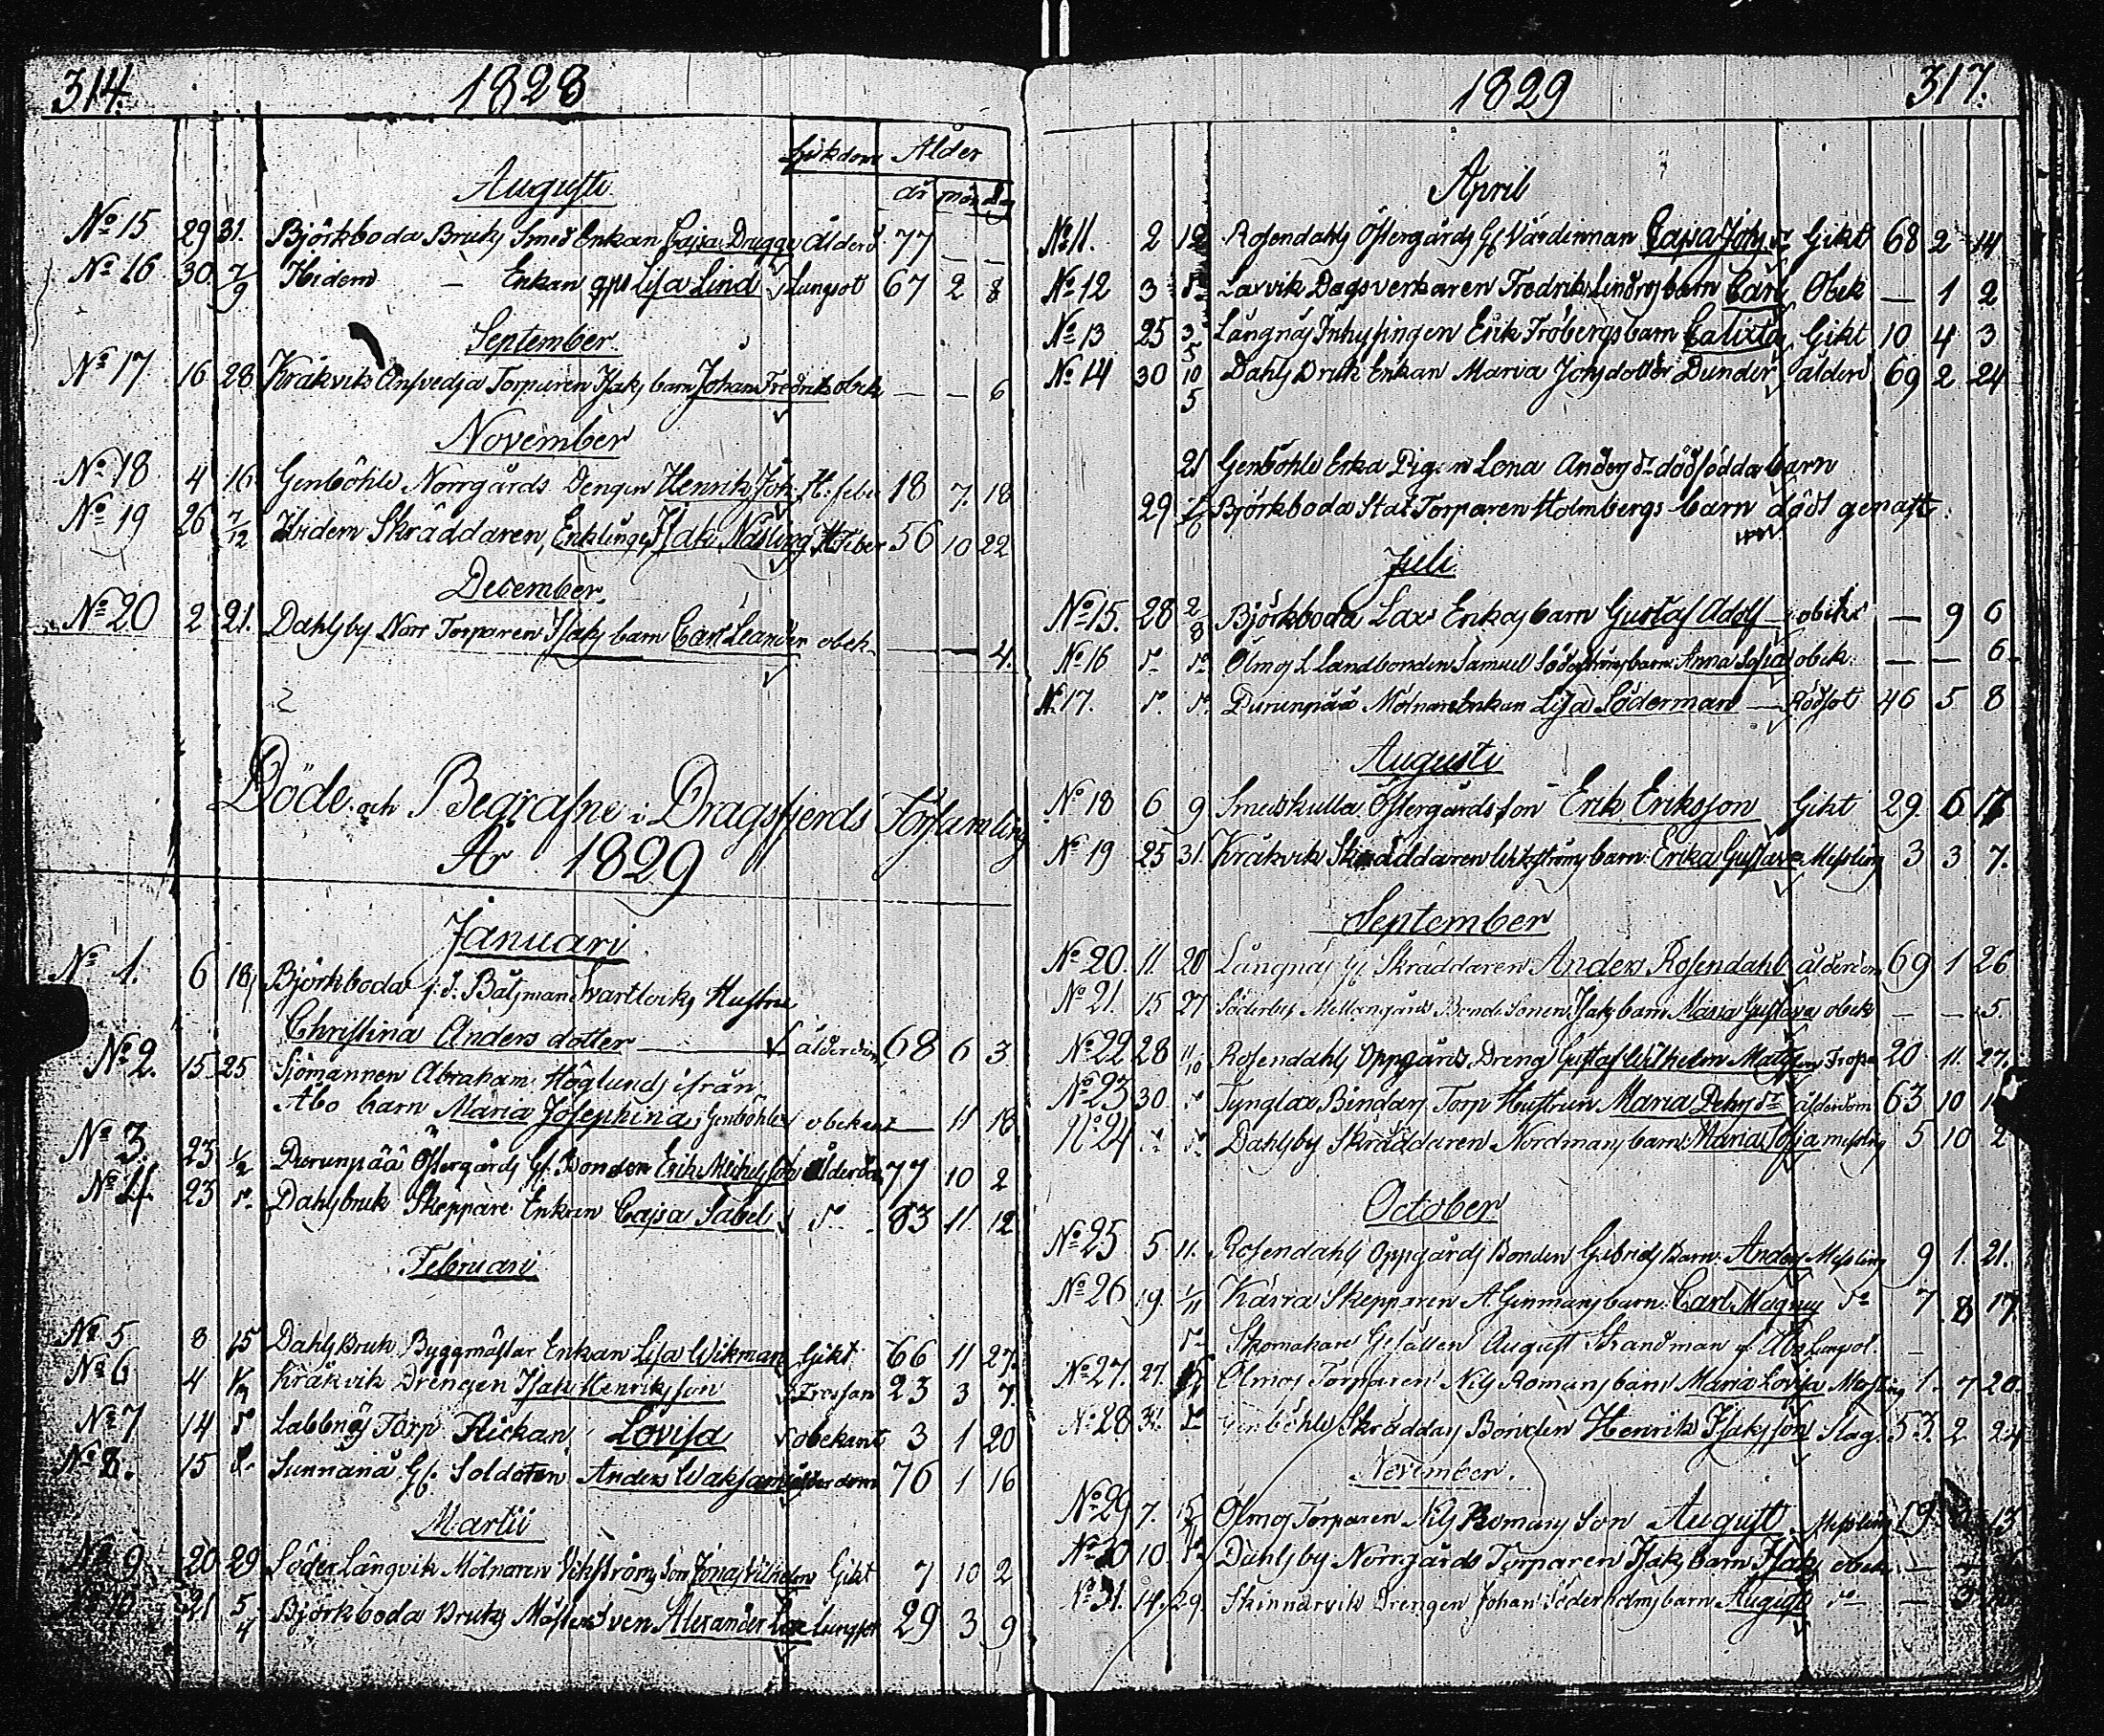 314. 1828
Sjukdom Ålder
år mån dag
Augusti
No 15 29 31. Björkboda Bruks Smed Enkan Cajsa Drugge ålderd 77 — —
No 16 30 7/9 Ibidem — Enkan Lisa Lind Lungsot 67 2 8
September
No 17 16 28 Kråkvik Torparen Isaks barn Johan Fredrik obek — — 6
November
No 18 4 16 Genböhle Norrgårds Dengen Henrik Joh. H: feber 18 7. 18
No 19 26 7/12 Ibidem Skräddaren, Enklingen Isak Näsling H feber 56 10 22
December.
No 20 2 21. Dahlsby Norr Torparen Isaks barn Carl Leander obek — — 4.
Döde och Begrafne i Dragsfjerds Församling
År 1829
Januari
No 1. 6 18 Björkboda f. d. Båtsman Svartlocks Hustru
Christina Anders dotter — ålderdom 68 6 3
No 2. 15 25 Sjömannen Abraham Höglunds ifrån
Åbo barn Maria Josephina, Genböhle obekant — 11 18
No 3. 23 1/2 Durunpää Östergårds Gl. Bonden Erik Michelsson ålderdom 77 10 2
No 4. 23 do Dahlsbruk Skeppare Enkan Cajsa Sabel do 83 11. 12
Februari
No 5 8 15 Dahls Bruk Byggmästar Enkan Lisa Wikman Gikt 66 11 27.
No 6 4 Kråkvik Drengen Isak Henriksson 23 3 7.
No 7 14 do Labbnäs Torp Flickan Lovisa obekant 3 1 20
No 8. 15 do Sunnanå Gl. Soldaten Anders ålderdom 76 1 16
Martii
No 9 20 29 Söder Långvik Mölnaren Vikströms Son Jonas Vilhelm Gikt 7 10 2
No 10 21 5/4 Björkboda Bruks Mästersven Alexander Lax Lungsot 29 3 9
1829 317.
April
No 11. 2 12 Rosendahls Östergårds Gl Värdinnan Cajsa Johs dr Gikt 68 2 14
No 12 3 do Laxvik Dagsverkaren Fredrik Lindros barn Carl Obek — 1 2
No 13 25 3/5 Långnäs Inhysingen Erik Fröbergs barn Calixta Gikt 10 4 3
No 14 30 10/5 Dahls Bruk Enkan Maria Johsdotter Dunder ålderd 69 2 24
21 Genböhle Erka Pigan Lena Anders dr dödfödda barn
29 Björkboda Stat Torparen Holmbergs barn dödt genast
Juli
No 15. 28 2/8 Björkboda Lax Erikas barn Gustaf Adolf — obekt — 9 6
No 16 do do Ölmos L Landbonden Samuel Söderströms barn Anna Sofia obek. — — 6
No 17. do do Durunpää Mölnare Enkan Lisa Söderman — Rödsot 46 5 8
Augusti
No 18 6 9 Smedskulla Östergårds son Erik Eriksson Gikt 29. 6 17
No 19 25 31. Kråkvik Skräddaren Wikströms barn Erika Gustava Messling 3 3 7.
September
No 20. 11. 20 Långnäs Gl Skräddaren Anders Rosendahl ålderdom 69 1 26
No 21. 15 27 Söderby Mellangårds Bonde Sonen Isaks barn Maria Gustava obek — — 5.
No 22 28 11/10 Rosendahls Oppgårds Dreng Gustaf Wilhelm Mattsson 20 11. 27
No 23 30. do Tynglax Bindars Torp Hustrun Maria ålderdom 63 10
No 24 do do Dahlsby Skräddaren Nordmans barn Maria Sofia messling 5 10 2
October
No 25 5 11. Rosendahls Oppgårds Bonden Gabriels Barn Anders Messling 9 1. 21.
No 26 19. 1/11 Kärra Skepparen A. Ginmans barn Carl Magnus do 7 8 17
do Skomakare Gesällen August Strandman af Åbo Lungsot. —
No 27. 27. Ölmos Torparen Nils Romans barn Maria Lovisa Messling 1. 7 20.
No 28 31. do Genböhle Skräddars Bonden Henrik Isaksson Slag. 53. 2 24
November.
No 29 7. Ölmos Torparen Nils Romans Son August Messling 13
No 30 10. Dahlsby Norrgårds Torparen Isaks barn Isak obek — —
No 31. 14. 29. Skinnarvik Drengen Johan Söderholms barn August do —